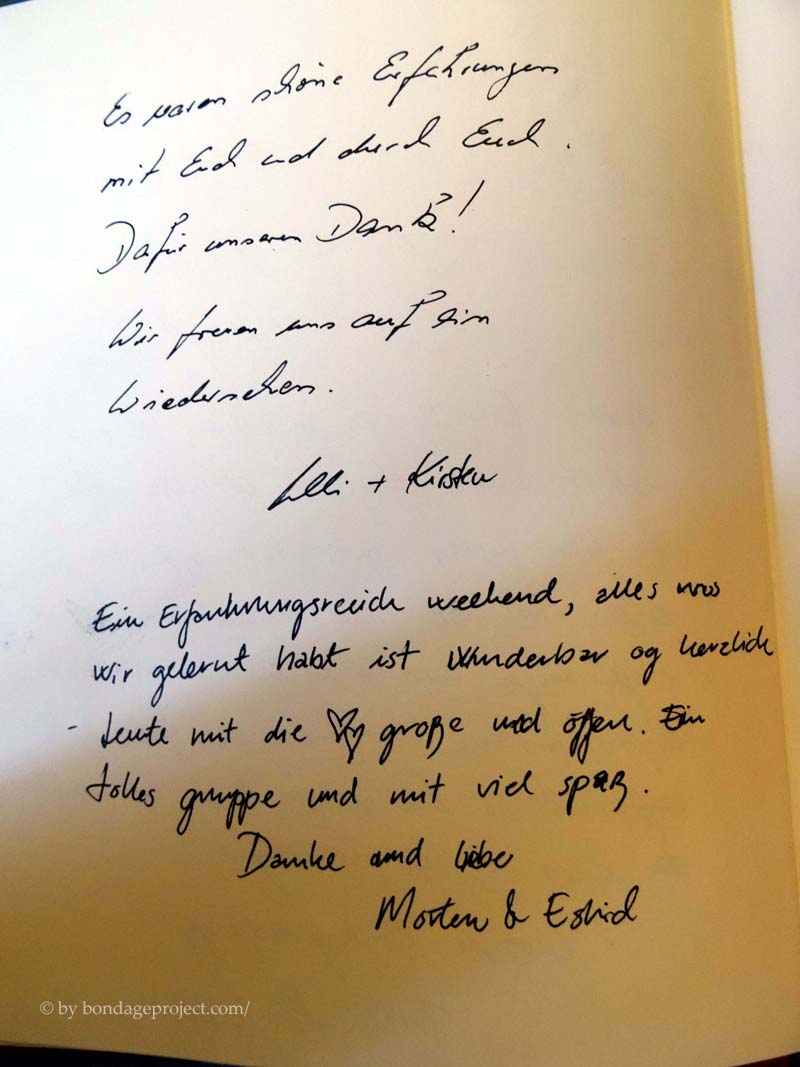 Es waren schöne Erfahrungen
mit Euch und durch Euch.
Dafür unseren Dank!
Wir freuen uns auf ein
Wiedersehen.
+ Kirsten
Ein Erfahrungsreich weekend, alles was
wir gelernt habt ist Wunderbar og herzlich
- Leute mit die große und öffen. Ein
tolles gruppe und mit viel spaß.
Danke and liebe
Morten &
© by bondageproject.com/